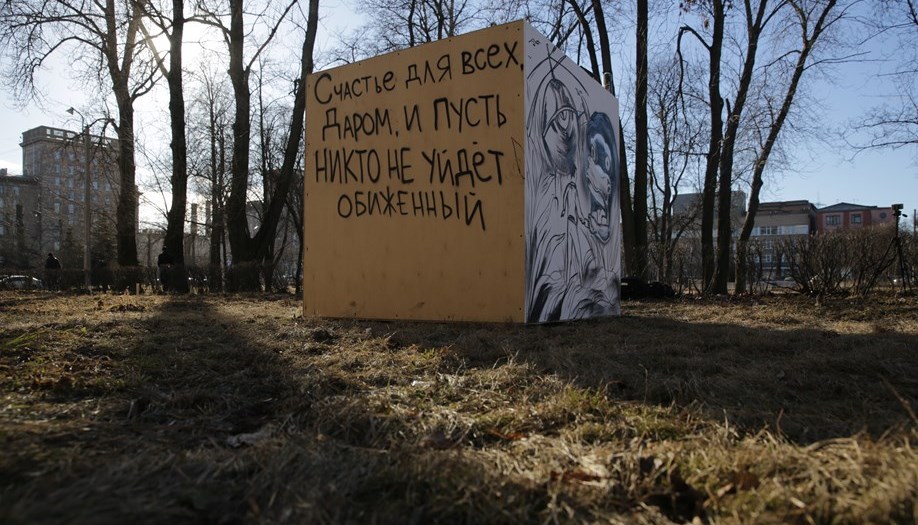 Счастье для всех,
Даром, и пусть
никто не уйдёт
обиженный